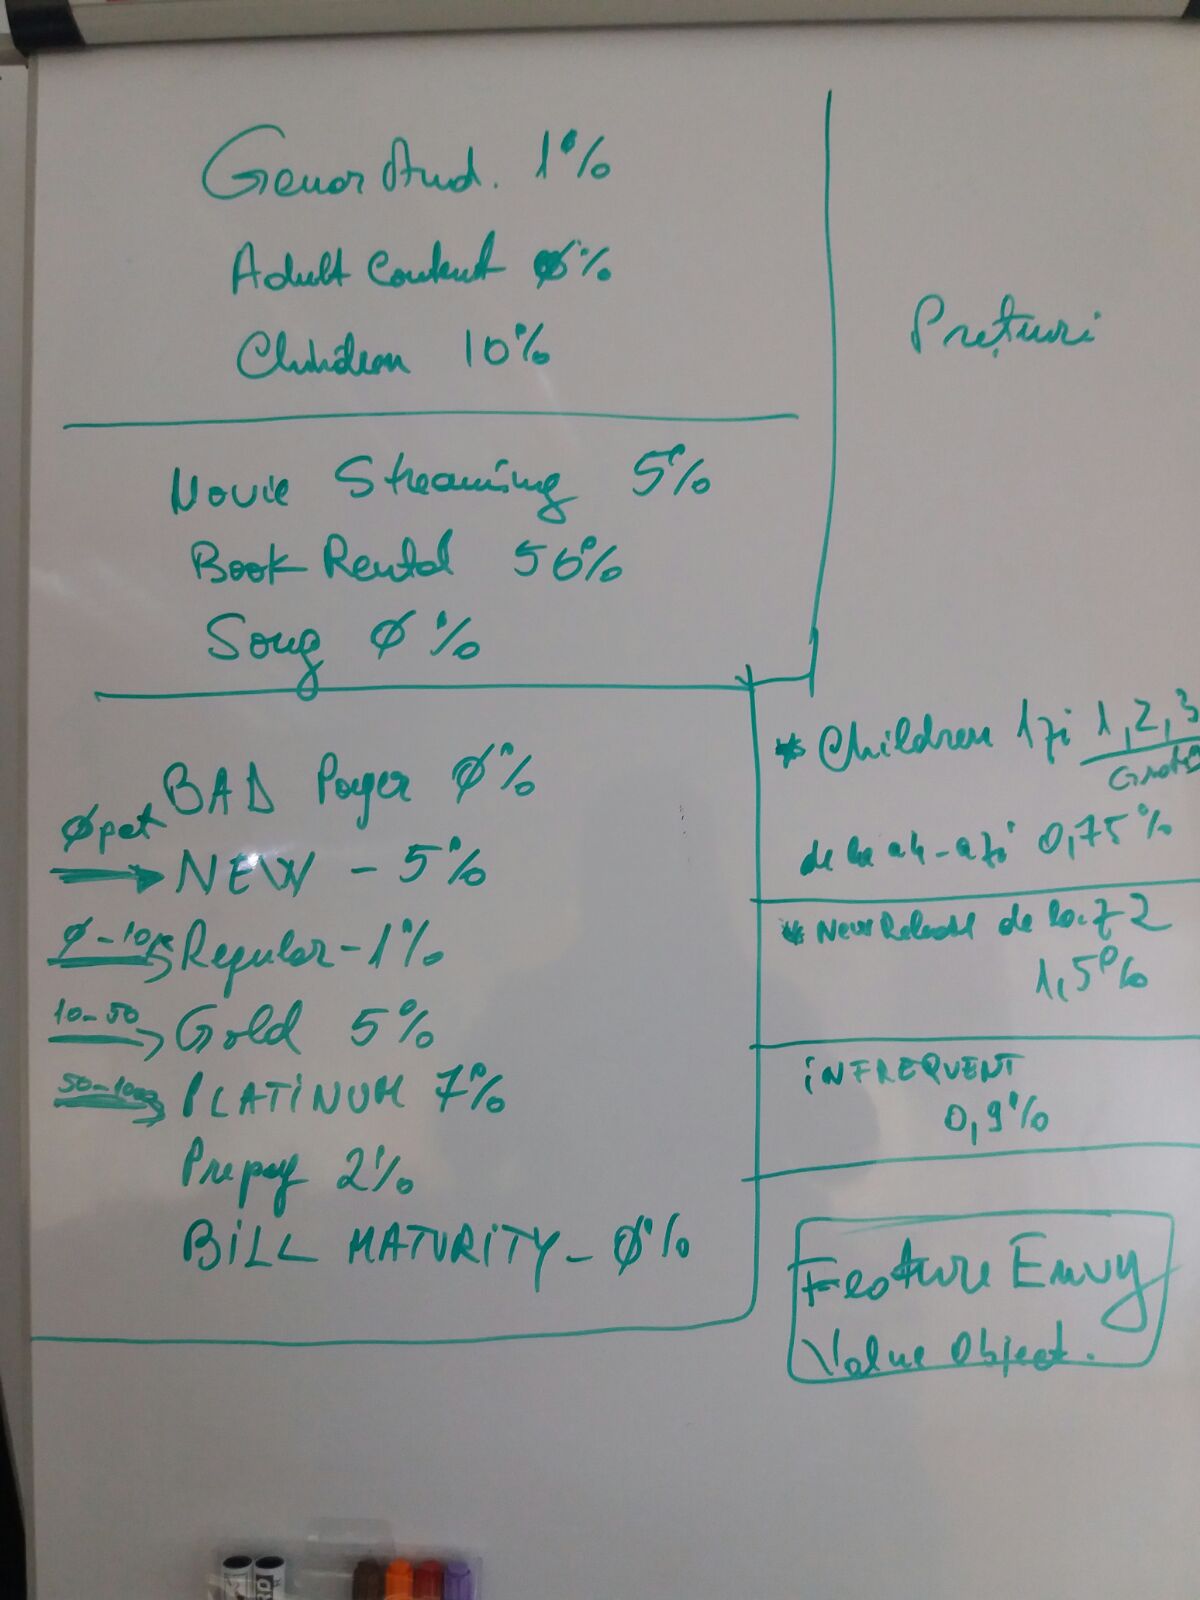 Gener Aud. 1%
Adult Content 0%
Children 10%
Movie Streaming 5%
Book Rental 50%
Song 0%
BAD Payer 0%
0 pct
NEW - 5%
0-10
Regular - 1%
10-50
Gold 5%
50-1000
PLATINUM 7%
Prepay 2%
BILL MATURITY - 0%
Prețuri
* Children 1 zi 1, 2, 3
Gratis
de la a 4-a zi 0,75%
* New Release de la z 2
1,5%
INFREQUENT
0,9%
Feature Envy
Value Object.